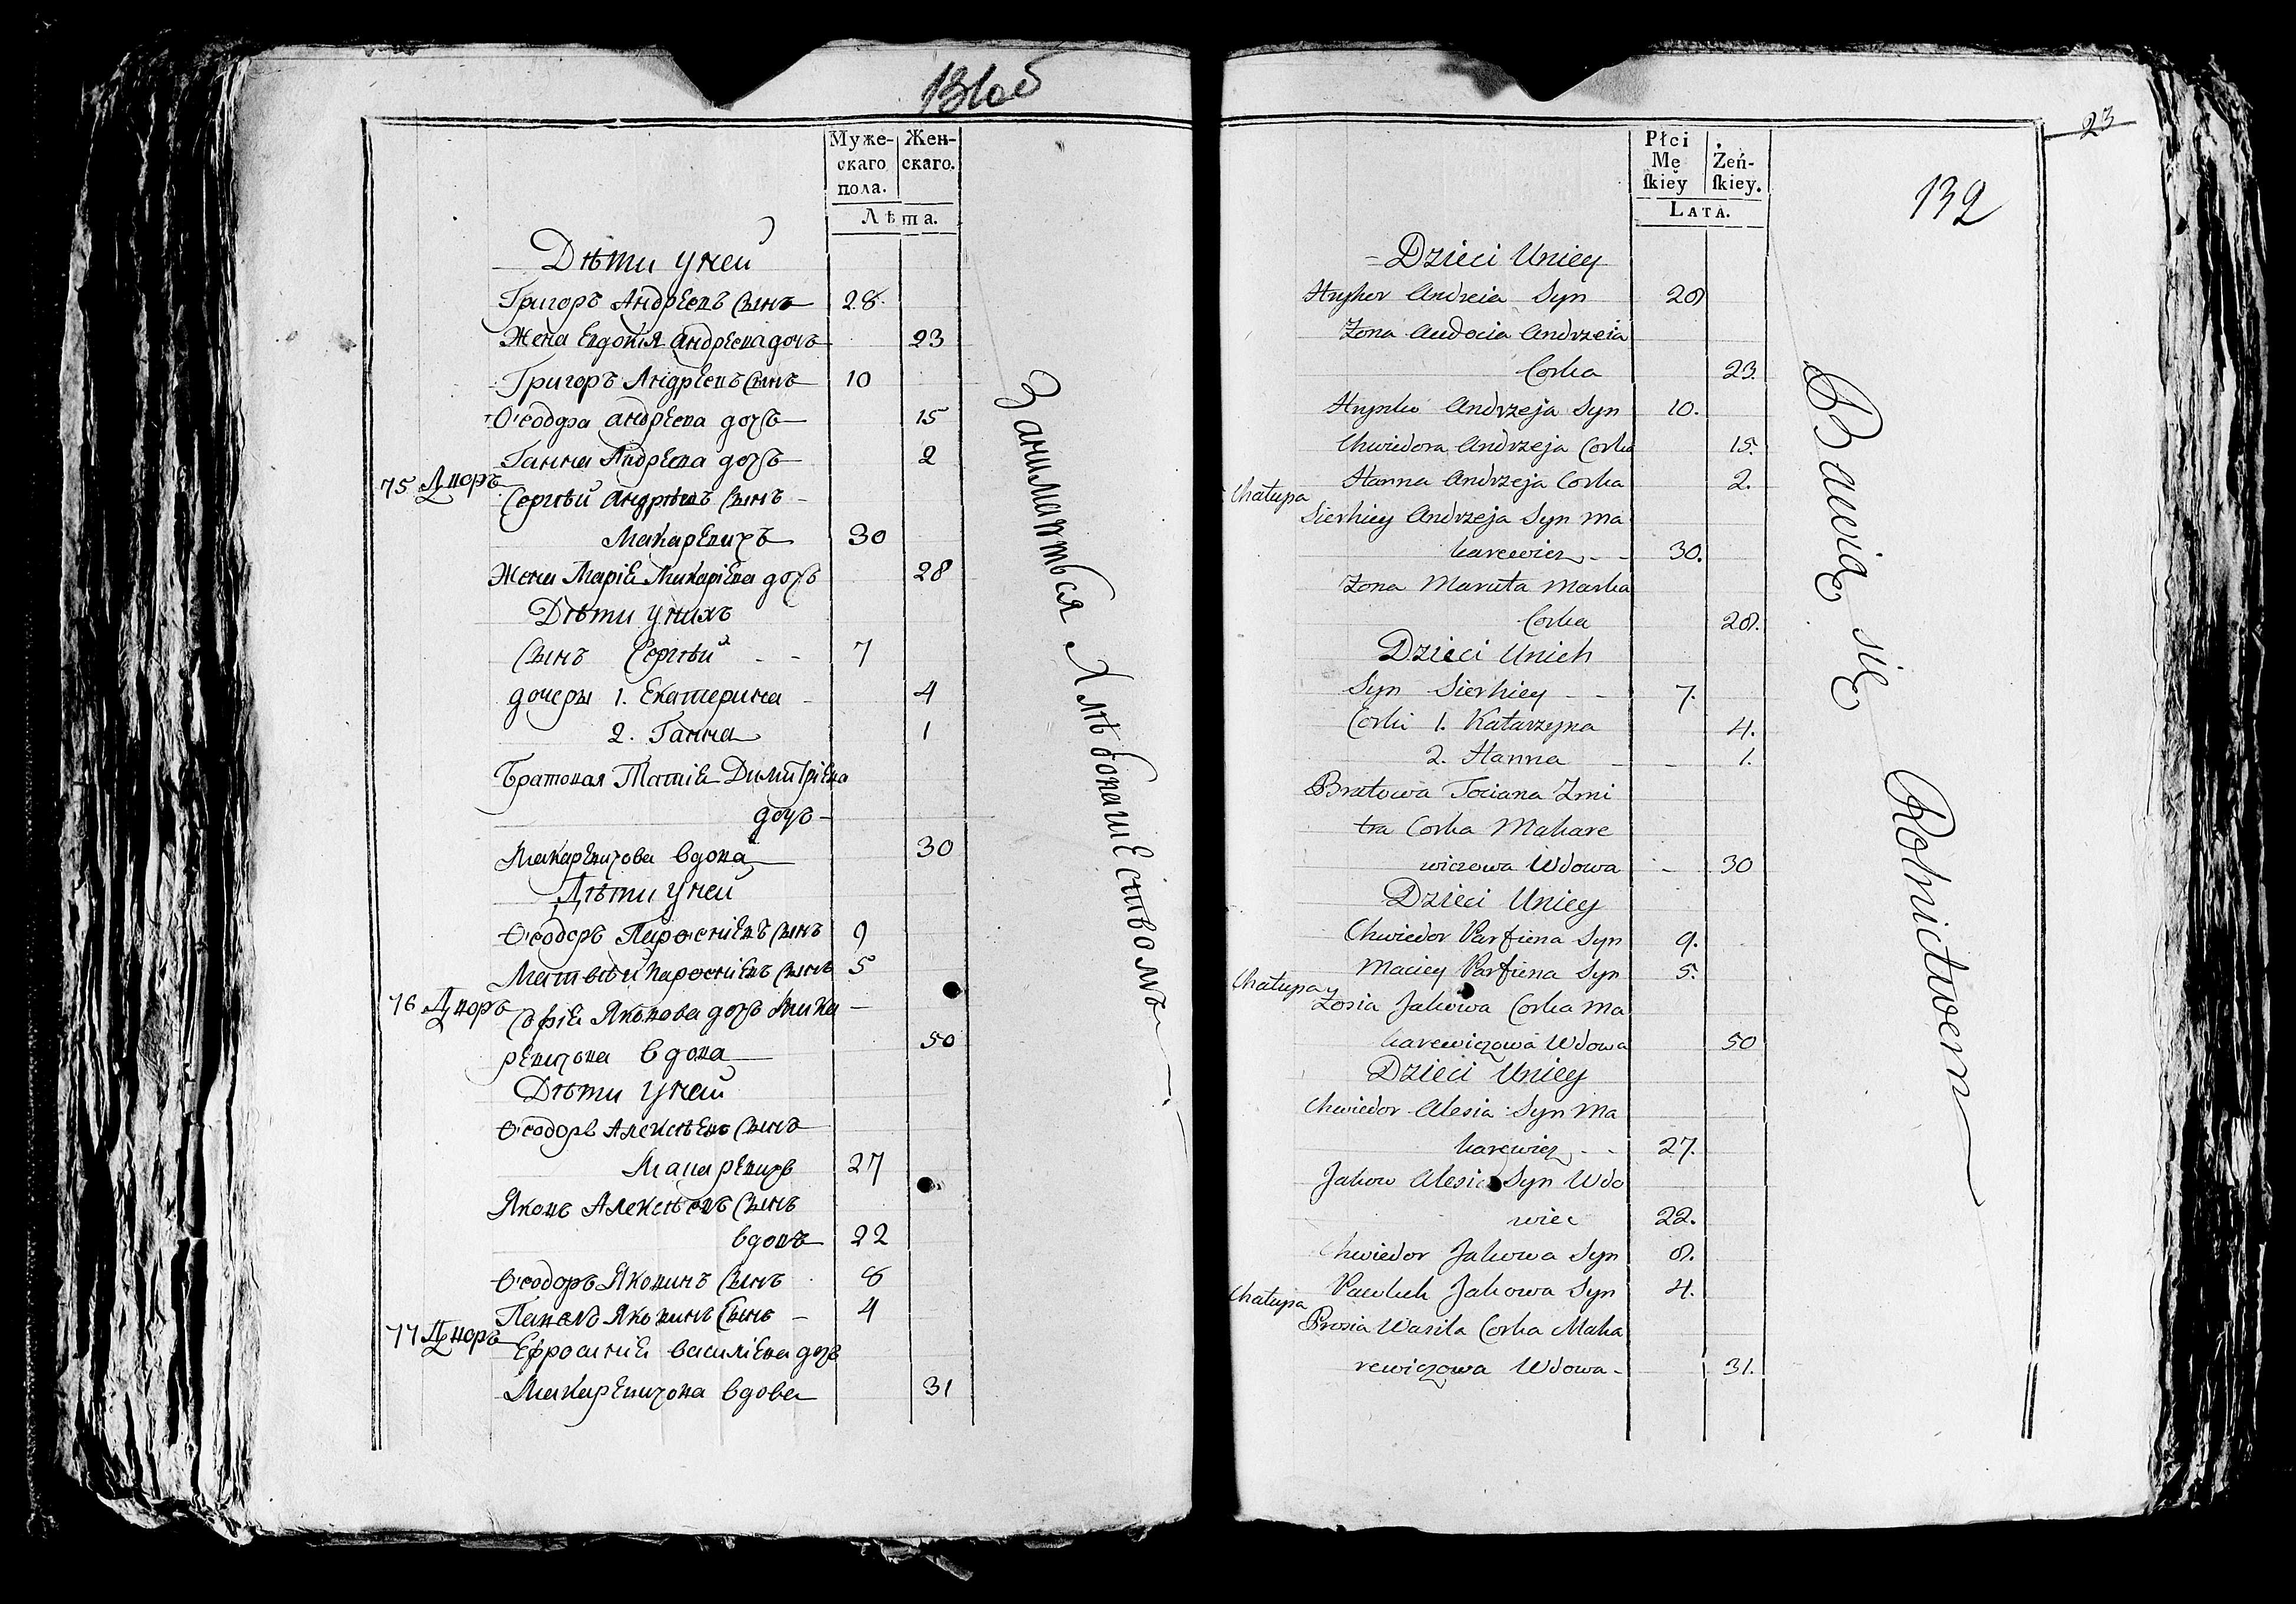 131об
Муже-
скаго
пола.
Жен-
скаго.
Лѣта.
Дѣти унеи
Григоръ Андрѣевъ Сынъ 28.
Жена Евдокія Андреева дочь 23
Григоръ Андреевъ Сынъ 10
Ѳеодора андреева дочь 15
Ганна Андреева дочь 2
75 Дворъ
Сергѣй андрѣевъ Сынъ
Макаревичъ 30
Жена Маріе Макаріева дочь 28
Дѣти унихъ
Сынъ Сергѣй - - 7
дочеры 1. Екатерина 4
2. Ганна 1
Братовая Татіе Димитріева
дочь
Макаревичова вдова 30
Дѣти унеи
Ѳеодоръ Парѳеніевъ Сынъ 9
Матвѣй Парѳеніевъ Сынъ 5
76 Дворъ
Софіе Яковова дочь Мака
ревичова вдова 50
Дѣти унеи
Ѳеодоръ Алексѣевъ Сынъ
Макаревичъ 27
Яковъ Алексѣевъ Сынъ
вдовъ 22
Ѳеодоръ Яковинъ Сынъ 8
Павелъ Яковинъ Сынъ 4
77 Дворъ
Ефросиніе василіева дочь
Макаревичова вдова 31
Заниматься Хлѣбопашествомъ
23
132
Płci
Mę
ſkiey
Żeń-
ſkiey.
LATA.
Dzieci Uniey
Hryhor Andreia Syn 28
Zona Audocia Andrzeia
Corka 23.
Hrynko Andrzeja Syn 10.
Chwiedora Andrzeja Corka 15.
Hanna Andrzeja Corka 2.
Chałupa
Sierhiey Andrzeja Syn Ma
karewicz - - 30.
Zona Maruta Marka
Corka 28.
Dzieci Unich
Syn Sierhiey - - 7.
Corki 1. Katarzyna 4.
2. Hanna 1.
Bratowa Taciana Zmi
tra Corka Makare
wiczowa Wdowa 30
Dzieci Uniey
Chwiedor Parfiena Syn 9.
Maciey Parfiena Syn 5.
Chałupa
Zosia Jakowa Corka Ma
karewiczowa Wdowa 50
Dzieci Uniey
Chwiedor Alesia Syn Ma
karewicz - - 27.
Jakow Alesia Syn Wdo
wiec 22.
Chwiedor Jakowa Syn 8.
Pawluk Jakowa Syn 4.
Chałupa
Prosia Wasila Corka Maka
rewiczowa Wdowa - 31.
Bawią się Rolnictwem